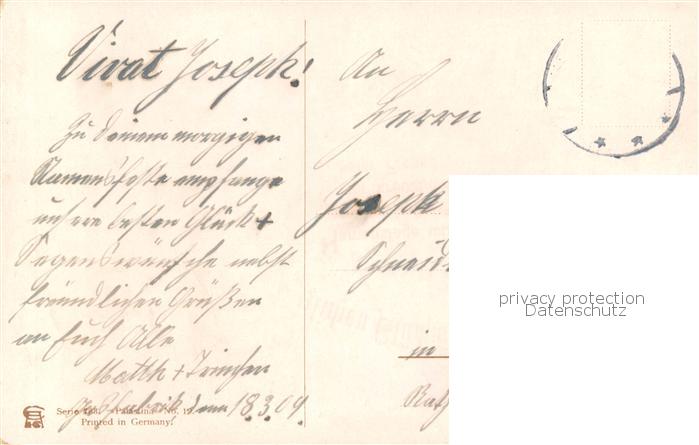 Vivat Joseph!
Zu Deinem morgigen
Namensfeste empfange
unsere besten Glück +
Segenswünsche nebst
freundlichen Grüßen
an Euch Alle
Matth + Trinchen
den 18.3.09
An
Herrn
Joseph
Schneid
in
privacy protection
Datenschutz
Serie "Palatina" No. 12.
Printed in Germany.